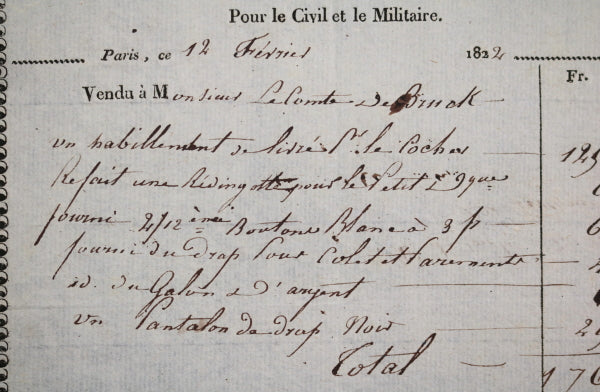 Pour le Civil et le Militaire.
Paris, ce 12 Février 1822
Fr.
Vendu à Monsieur Le Comte De Bruck
un habillement de livré Pr. le Cocher 125
Refait une Redingotte pour le Petit
fourni 4/12 ème Boutons Blanc à 3 p 6
fourni du drap Pour Colet et Parements
id. du Galon d'argent
un Pantalon de drap Noir 2
Total 176